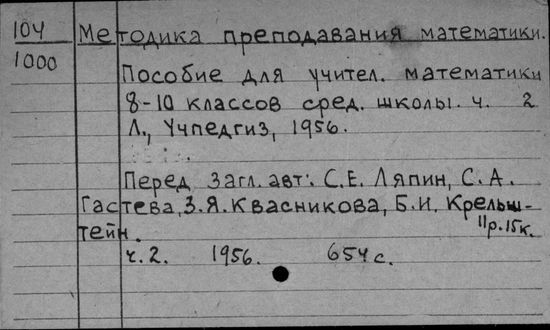 104
1000
Методика преподавания математики.
Пособие для учител. математики
8-10 классов сред. школы. ч. 2
Л., Учпедгиз, 1956.
Перед загл. авт.: С.Е. Ляпин, С.А.
Гастева, З.Я. Квасникова, Б.И. Крельш-
тейн.
11р.15к.
ч.2. 1956. 654с.